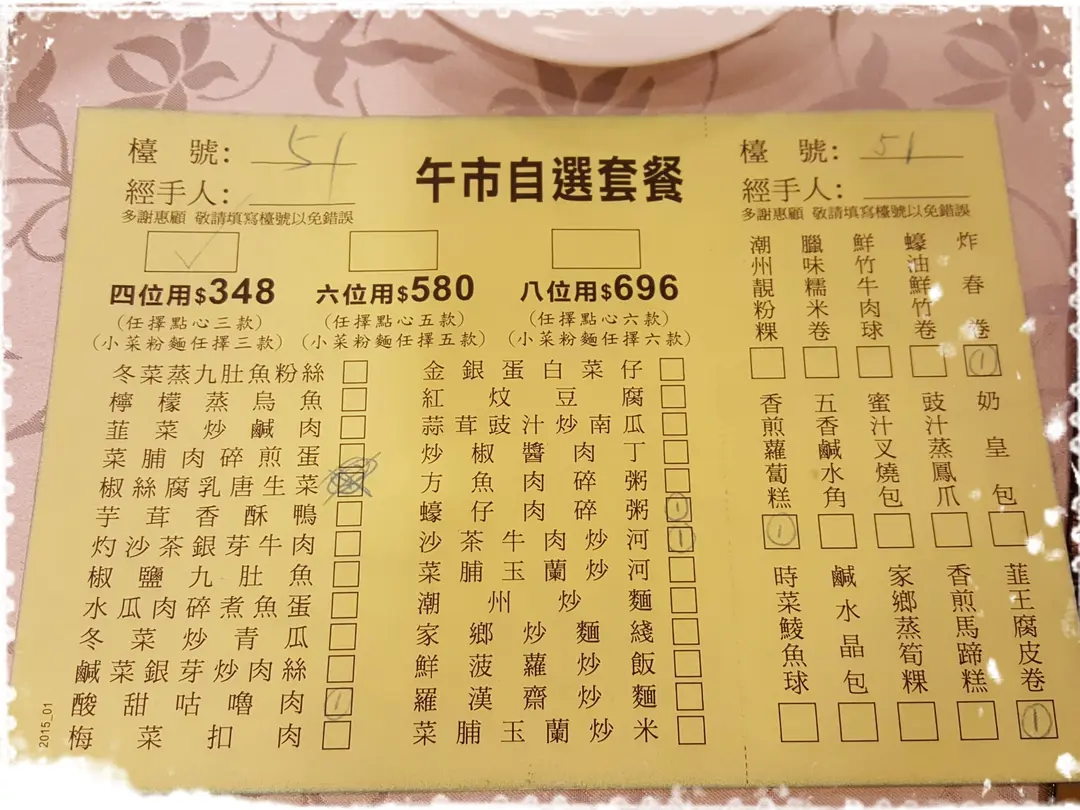 檯 號： 51
經手人：
多謝惠顧 敬請填寫檯號以免錯誤
午市自選套餐
✓
四位用$348
(任擇點心三款)
(小菜粉麵任擇三款)
六位用$580
(任擇點心五款)
(小菜粉麵任擇五款)
八位用$696
(任擇點心六款)
(小菜粉麵任擇六款)
冬菜蒸九肚魚粉絲
檸檬蒸烏魚
韮菜炒鹹肉
菜脯肉碎煎蛋
椒絲腐乳唐生菜
芋茸香酥鴨
灼沙茶銀芽牛肉
椒鹽九肚魚
水瓜肉碎煮魚蛋
冬菜炒青瓜
鹹菜銀芽炒肉絲
酸甜咕嚕肉 1
梅菜扣肉
金銀蛋白菜仔
紅炆豆腐
蒜茸豉汁炒南瓜
炒椒醬肉丁
方魚肉碎粥
蠔仔肉碎粥 1
沙茶牛肉炒河 1
菜脯玉蘭炒河
潮州炒麵
家鄉炒麵綫
鮮菠蘿炒飯
羅漢齋炒麵
菜脯玉蘭炒米
2015_01
檯 號： 51
經手人：
多謝惠顧 敬請填寫檯號以免錯誤
潮州靚粉粿
臘味糯米卷
鮮竹牛肉球
蠔油鮮竹卷
炸春卷 1
香煎蘿蔔糕 1
五香鹹水角
蜜汁叉燒包
豉汁蒸鳳爪
奶皇包
時菜鯪魚球
鹹水晶包
家鄉蒸筍粿
香煎馬蹄糕
韮王腐皮卷 1